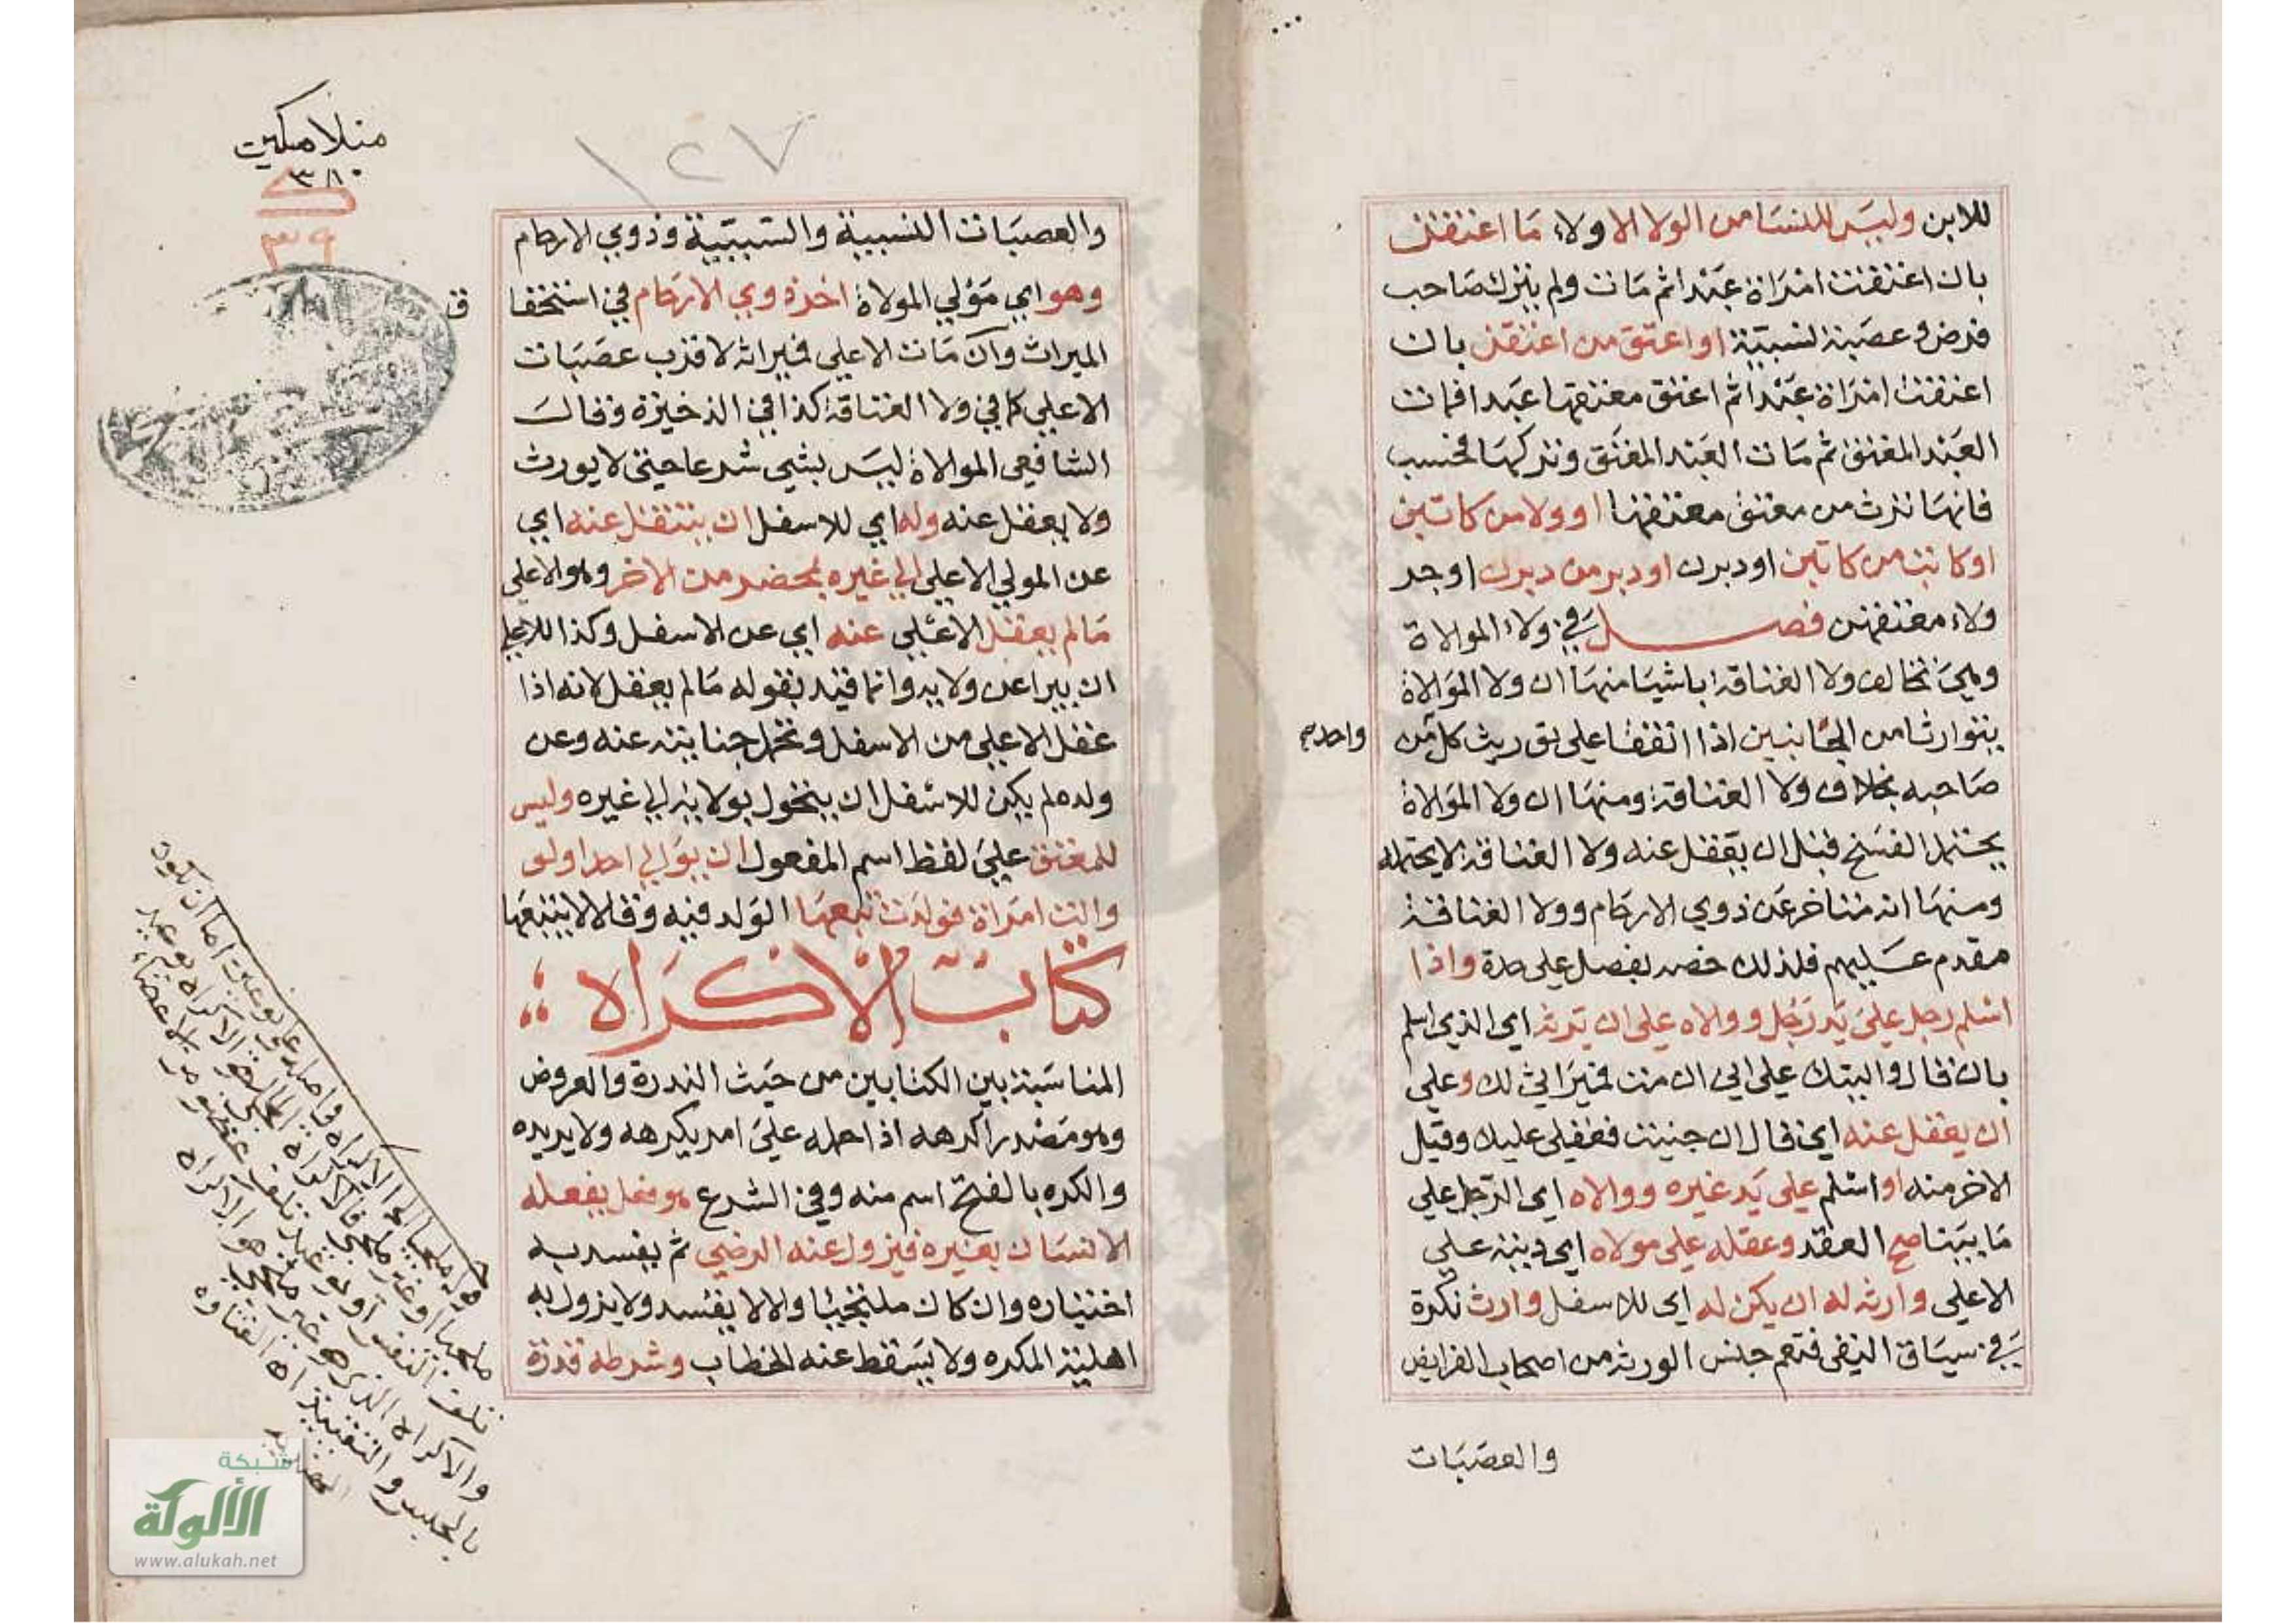 للابن وليس للنسا من الولا الا ولاء ما اعتقن
بان اعتقت امراة عبدا ثم مات ولم يترك صاحب
فرض وعصبة نسبية او اعتق من اعتقن بان
اعتقت امراة عبدا ثم اعتق معتقها عبدا فمات
العبد المعتق ثم مات العبد المعتق وتركها فحسب
فانها ترث من معتق معتقها او ولا من كاتبن
او كاتب من كاتبن او دبرن او دبر من دبرن او جر
ولاء معتقهن فصل في ولاء المولاة
وهي تخالف ولا العتاقة باشيا منها ان ولا الموالاة
يتوارثا من الجانبين اذا اتفقا على توريث كل من
واحد صح
صاحبه بخلاف ولا العتاقة ومنها ان ولا الموالاة
يحتمل الفسخ قبل ان يعقل عنه ولا العتاقة لا يحتمله
ومنها انه متاخر عن ذوي الارحام وولا العتاقة
مقدم عليهم فلذلك خصه بفصل على حدة واذا
اسلم رجل على يد رجل ووالاه على ان يرثه اي الذي اسلم
بان قال واليتك على اني ان مت فميراثي لك وعلى
ان يعقل عنه اي قال ان جنيت فعقلي عليك وقبل
الاخر منه او اسلم على يد غيره ووالاه اي الرجل على
ما بينا صح العقد وعقله على مولاه اي ديته على
الاعلى وارثه له ان يكن له اي للاسفل وارث نكرة
في سياق النفي فتعم جنس الورثة من اصحاب الفرايض
والعصبات
منلا مسكين
٣٨٠
٣٩
١٢٧
والعصبات النسبية والسببية وذوي الارحام
وهو اي مولي المولاة اخر ذوي الارحام في استحقا
ق
الميراث وان مات الاعلى فميراثه لاقرب عصبات
الاعلى كما في ولا العتاقة كذا في الذخيرة وقال
الشافعي الموالاة ليس بشي شرعا حتى لا يورث
ولا يعقل عنه وله اي للاسفل ان ينتقل عنه اي
عن المولى الاعلى الى غيره بمحضر من الاخر وهو الاعلى
مالم يعقل الاعلى عنه اي عن الاسفل وكذا للاعلى
ان يبرا عن ولايه وانما قيد بقوله مالم يعقل لانه اذا
عقل الاعلى من الاسفل وتحمل جنايته عنه وعن
ولده لم يكن للاسفل ان يتحول بولايته الى غيره وليس
للمعتق على لفظ اسم المفعول ان يوالي احدا ولو
والت امراة فولدت تبعها الولد فيه وقالا لا يتبعها
كتاب الاكراه
المناسبة بين الكتابين من حيث الندرة والعروض
وهو مصدر اكرهه اذا حمله على امر يكرهه ولا يريده
والكره بالفتح اسم منه وفي الشرع هو فعل يفعله
الانسان بغيره فيزول عنه الرضي ثم يفسد به
اختياره وان كان ملتجيا والا لا يفسد ولا يزول به
اهلية المكره ولا يسقط عنه الخطاب وشرطه قدرة
شبكة
الألوكة
www.alukah.net